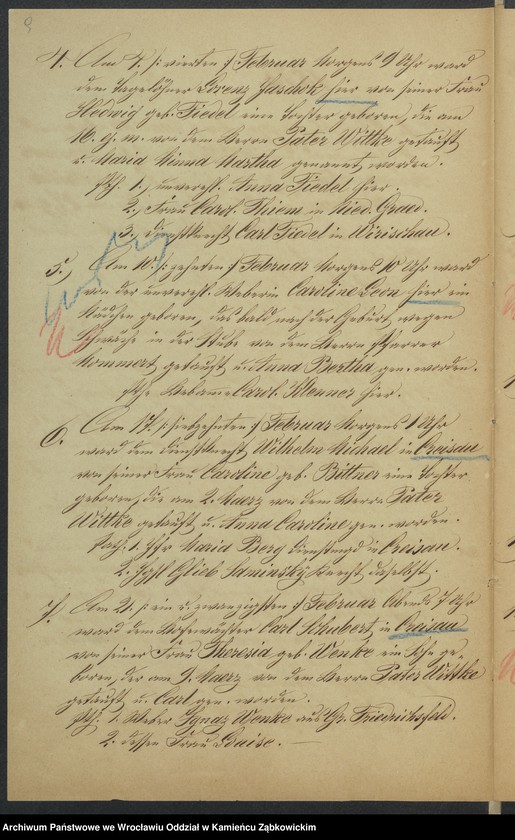 4. Am 4. /: vierten :/ Februar Morgens 9 Uhr ward
dem Tagelöhner Lorenz Jaschok hier von seiner Frau
Hedwig geb. Fiedel eine Tochter geboren, die am
16. ej. m. von dem Herrn Pater Wittke getauft
u. Maria Minna Martha genannt worden.
1., unverehl. Anna Fiedel hier.
2., Frau Carol. Thiem in Nied. Graed.
3. Dienstknecht Carl Fiedel in Wirischau.
5., Am 10. /: zehnten :/ Februar Morgens 10 Uhr ward
von der unverehl. Weberin Caroline hier ein
Mädchen geboren, das bald nach der Geburt wegen
Schwäche in der Stube von dem Herrn Pfarrer
Kommert, getauft u. Anna Bertha gen. worden.
Hebamme Carol. Klenner hier.
6. Am 17. /: siebzehnten :/ Februar Morgens 1 Uhr
ward dem Dienstknecht Wilhelm Michael in Creisau
von seiner Frau Caroline geb. Bittner eine Tochter
geboren, die am 2. Maerz von dem Herrn Pater
Wittke getauft u. Anna Caroline gen. worden.
1. Maria Berg Dienstmagd in Creisau.
2. Saminsky Knecht daselbst.
7. Am 21. /: ein u. zwanzigsten :/ Februar Abends 7 Uhr
ward dem Carl Schubert, in Creisau
von seiner Frau Theresia geb. Wenke ein Sohn ge-
boren, der am 9. Maerz von dem Herrn Pater Wittke
getauft u. Carl gen. worden.
1. Weber Ignaz Wenke aus Gr. Friedrichsfeld.
2. dessen Frau Louise.
Archiwum Państwowe we Wrocławiu Oddział w Kamieńcu Ząbkowickim